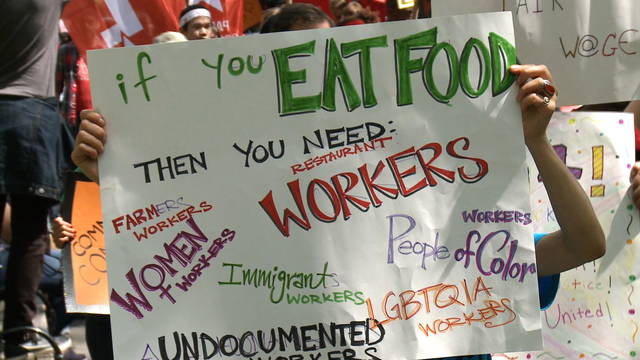 if you EAT FOOD
THEN YOU NEED:
RESTAURANT
WORKERS
FARMERS
WORKERS
WOMEN
+ WORKERS
Immigrants
WORKERS
People of Color
WORKERS
LGBTQIA
WORKERS
UNDOCUMENTED
WORKERS
FAIR
W@GE
United!